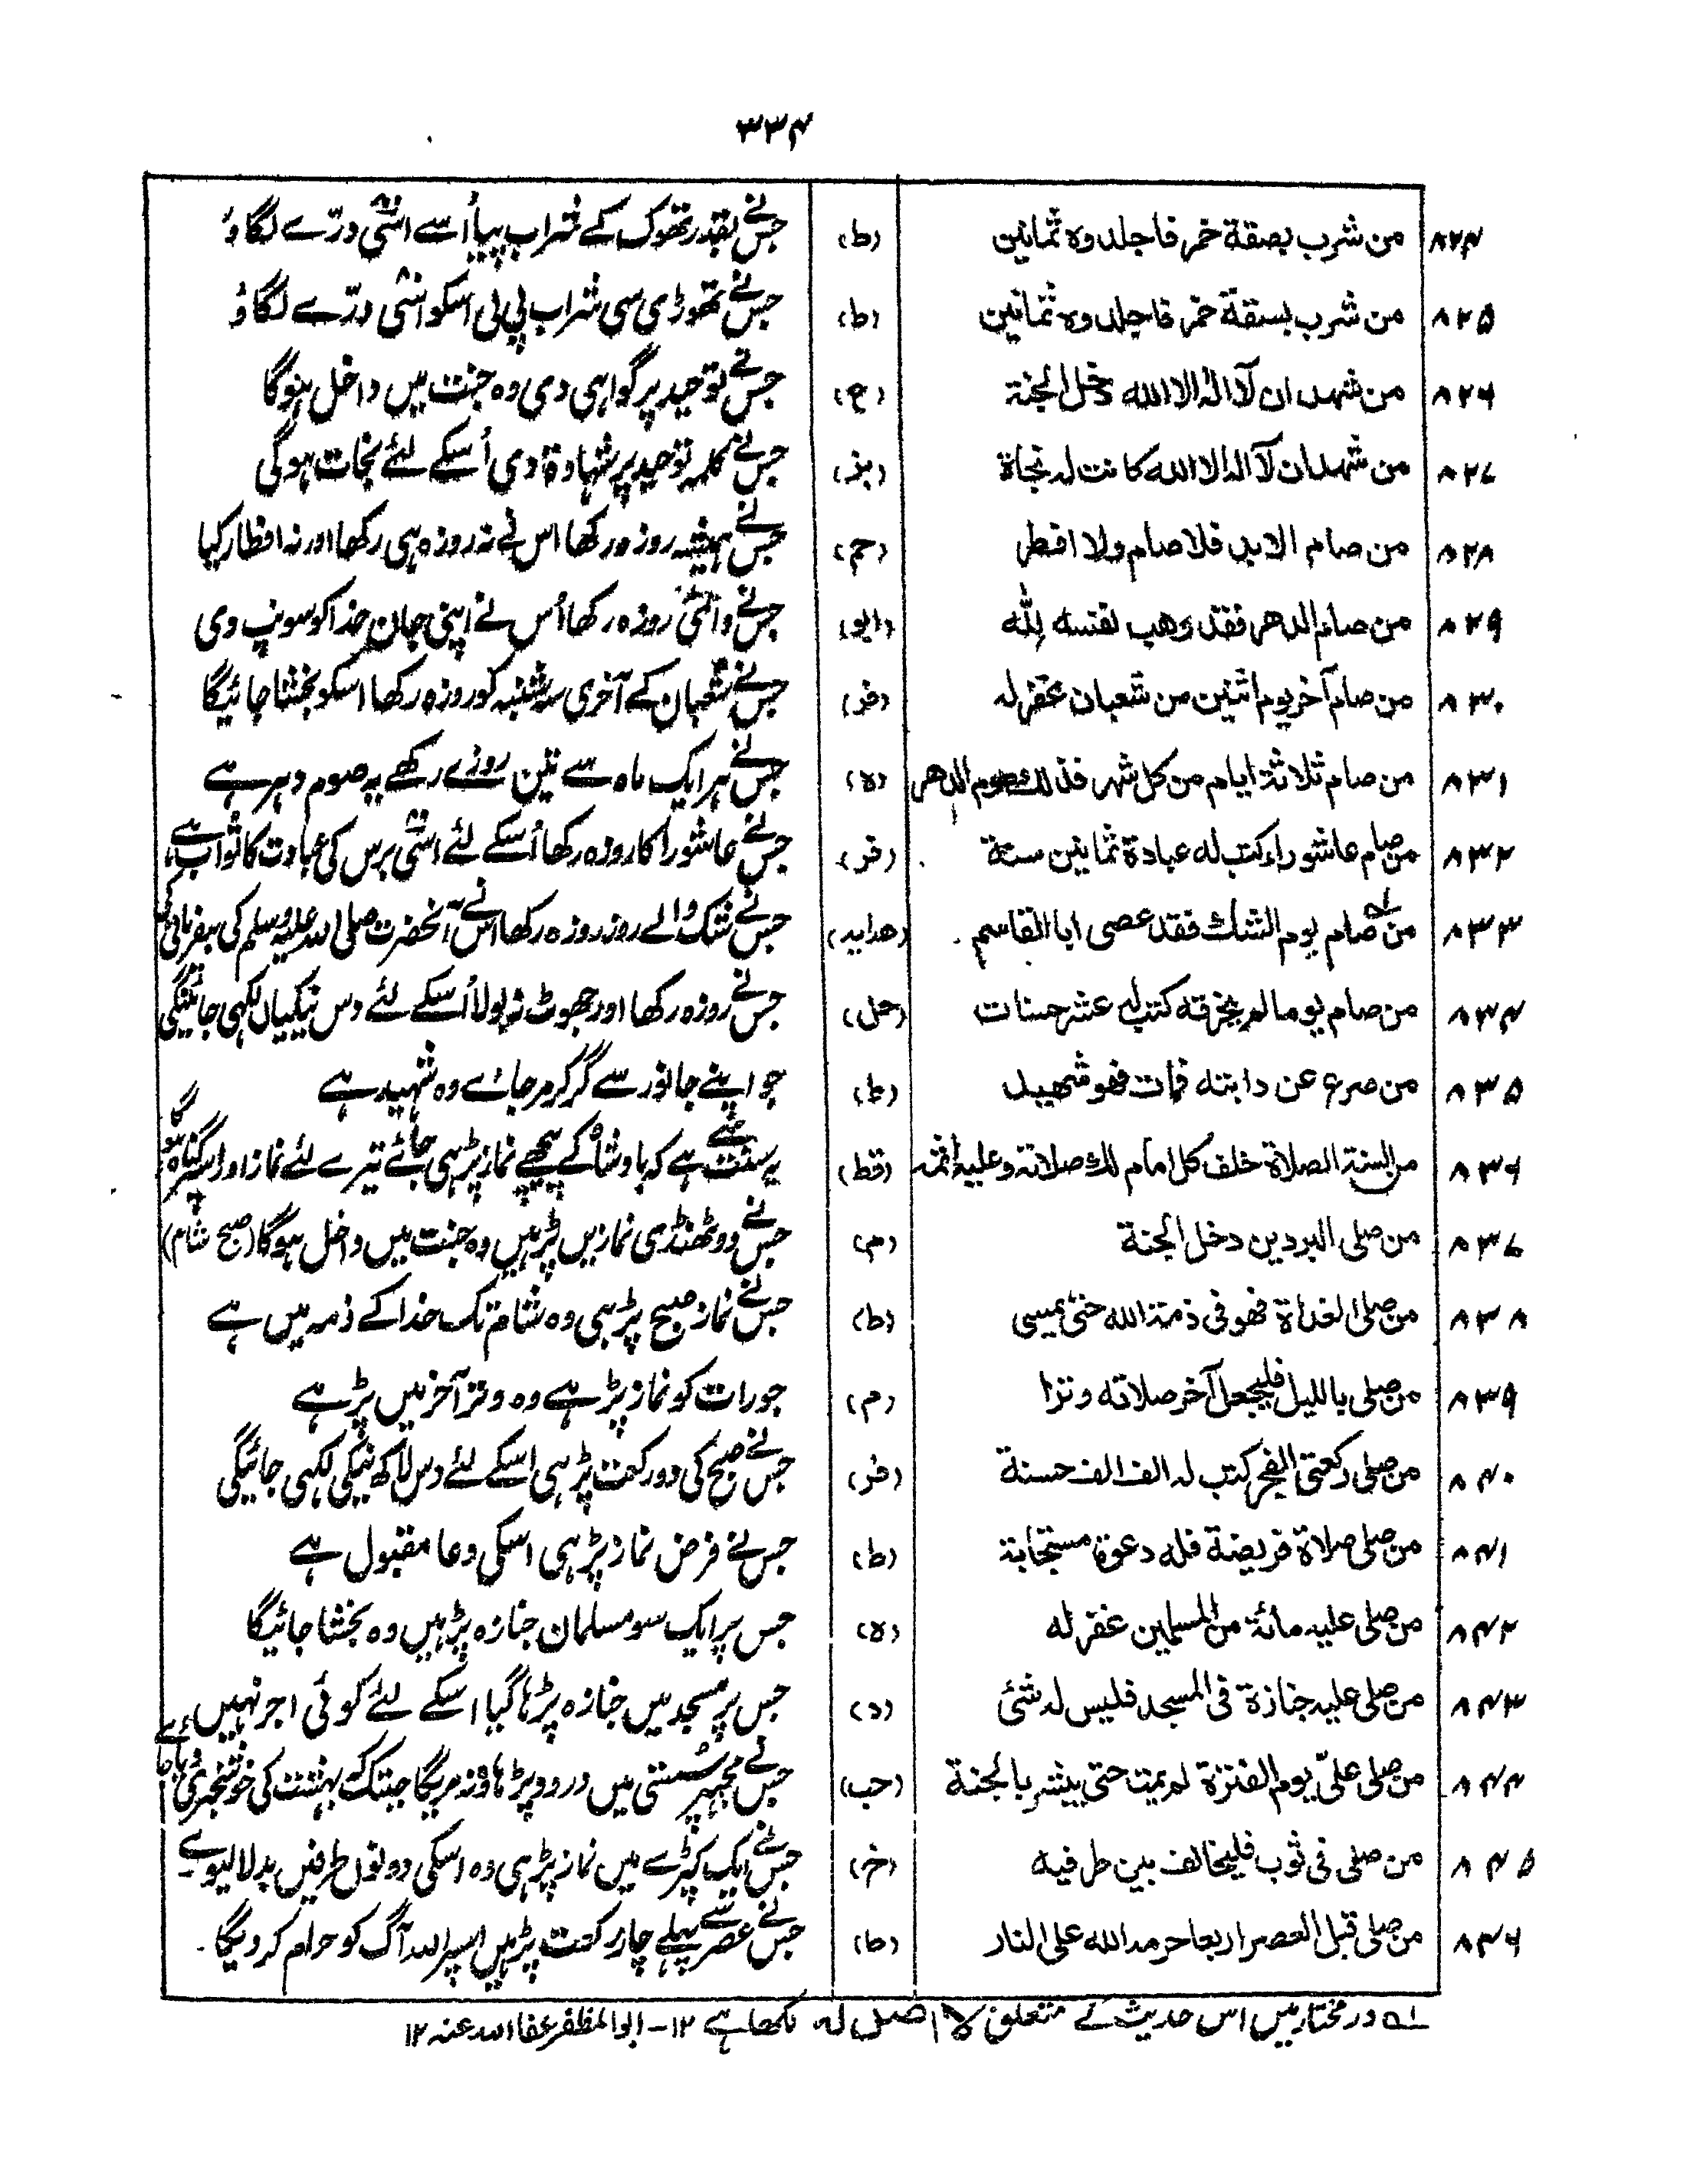 ۳۳۴
۸۲۴ من شرب بصقة خمر فاجلدوه ثمانين (ط) جس نے بقدر تھوک کے شراب پیا اُسے اسّی درّے لگاؤ
۸۲۵ من شرب بسقة خمر فاجلدوه ثمانين (ط) جس نے تھوڑی سی شراب پی لی اسکو اسّی درّے لگاؤ
۸۲۶ من شهد ان لآ اله الا الله دخل الجنة (ع) جس نے توحید پر گواہی دی وہ جنت میں داخل ہوگا
۸۲۷ من شهد ان لآ اله الا الله كانت له نجاة (بز) جس نے کلمہ توحید پر شہادۃ دی اُسکے لئے نجات ہوگی
۸۲۸ من صام الابد فلا صام ولا افطر (حم) جس نے ہمیشہ روزہ رکھا اس نے نہ روزہ ہی رکھا اور نہ افطار کیا
۸۲۹ من صام الدهر فقد وهب نفسه لله (ابو) جس نے دائمی روزہ رکھا اُس نے اپنی جان خدا کو سونپ دی
۸۳۰ من صام آخر يوم اثنين من شعبان غفر له (فر) جس نے شعبان کے آخری سہ شنبہ کو روزہ رکھا اسکو بخشا جائیگا
۸۳۱ من صام ثلاثة ايام من كل شهر فذلك صوم الدهر (ہ) جس نے ہر ایک ماہ سے تین روزے رکھے یہ صوم دہر ہے
۸۳۲ من صام عاشوراء كتب له عبادة ثمانين سنة (فر) جس نے عاشورا کا روزہ رکھا اُسکے لئے اسّی برس کی عبادت کا ثواب ہے
۸۳۳ من صام ؂۱ يوم الشك فقد عصى ابا القاسم (هدايه) جس نے شک والے روز روزہ رکھا اس نے آنحضرت صلی اللہ علیہ وسلم کی بیفرمانی کی
۸۳۴ من صام يوما لم يخرقه كتب له عشر حسنات (حل) جس نے روزہ رکھا اور جھوٹ نہ بولا اُسکے لئے دس نیکیاں لکہی جائینگی
۸۳۵ من صرع عن دابته فمات فهو شهيد (ط) جو اپنے جانور سے گر کر مر جائے وہ شہید ہے
۸۳۶ من السنة الصلاة خلف كل امام لك صلاتة وعليه اثمه (قط) یہ سنت ہے کہ بادشاہ کے پیچھے نماز پڑہی جائے تیرے لئے نماز اور اسپر گناہ ہو گا
۸۳۷ من صلى البردين دخل الجنة (م) جس نے دو ٹھنڈی نمازیں پڑہیں وہ جنت میں داخل ہوگا (صبح شام)
۸۳۸ من صلى الغداة فهو فى ذمة الله حتى يمسى (ط) جس نے نماز صبح پڑہی وہ شام تک خدا کے ذمہ میں ہے
۸۳۹ من صلى بالليل فليجعل آخر صلاته وترا (م) جو رات کو نماز پڑہے وہ وتر آخر میں پڑہے
۸۴۰ من صلى ركعتى الفجر كتب له الف الف حسنة (فر) جس نے صبح کی دو رکعت پڑہی اسکے لئے دس لاکھ نیکی لکہی جائیگی
۸۴۱ من صلى صلاة فريضة فله دعوة مستجابة (ط) جس نے فرض نماز پڑہی اسکی دعا مقبول ہے
۸۴۲ من صلى عليه مائة من المسلمين غفر له (ہ) جس پر ایک سو مسلمان جنازہ پڑہیں وہ بخشا جائیگا
۸۴۳ من صلى عليه جنازة فى المسجد فليس له شئ (د) جس پر مسجد میں جنازہ پڑہا گیا اسکے لئے کوئی اجر نہیں
۸۴۴ من صلى علىّ يوم الفترة لم يمت حتى يبشر بالجنة (حب) جس نے مجہپر سُستی میں درود پڑہا وہ نہ مریگا جبتک کہ بہشت کی خوشخبری نہ پا جائے
۸۴۵ من صلى فى ثوب فليخالف بين طرفيه (خ) جس نے ایک کپڑے میں نماز پڑہی وہ اسکی دونوں طرفیں بدلا لیوے
۸۴۶ من صلى قبل العصر اربعا حرمه الله على النار (ط) جس نے عصر سے پہلے چار رکعت پڑہیں اسپر اللہ آگ کو حرام کر دیگا۔
؂۱ در مختار میں اس حدیث کے متعلق لا اصل له لکھا ہے ۱۲ – ابو المظفر عفا اللہ عنہ ۱۲